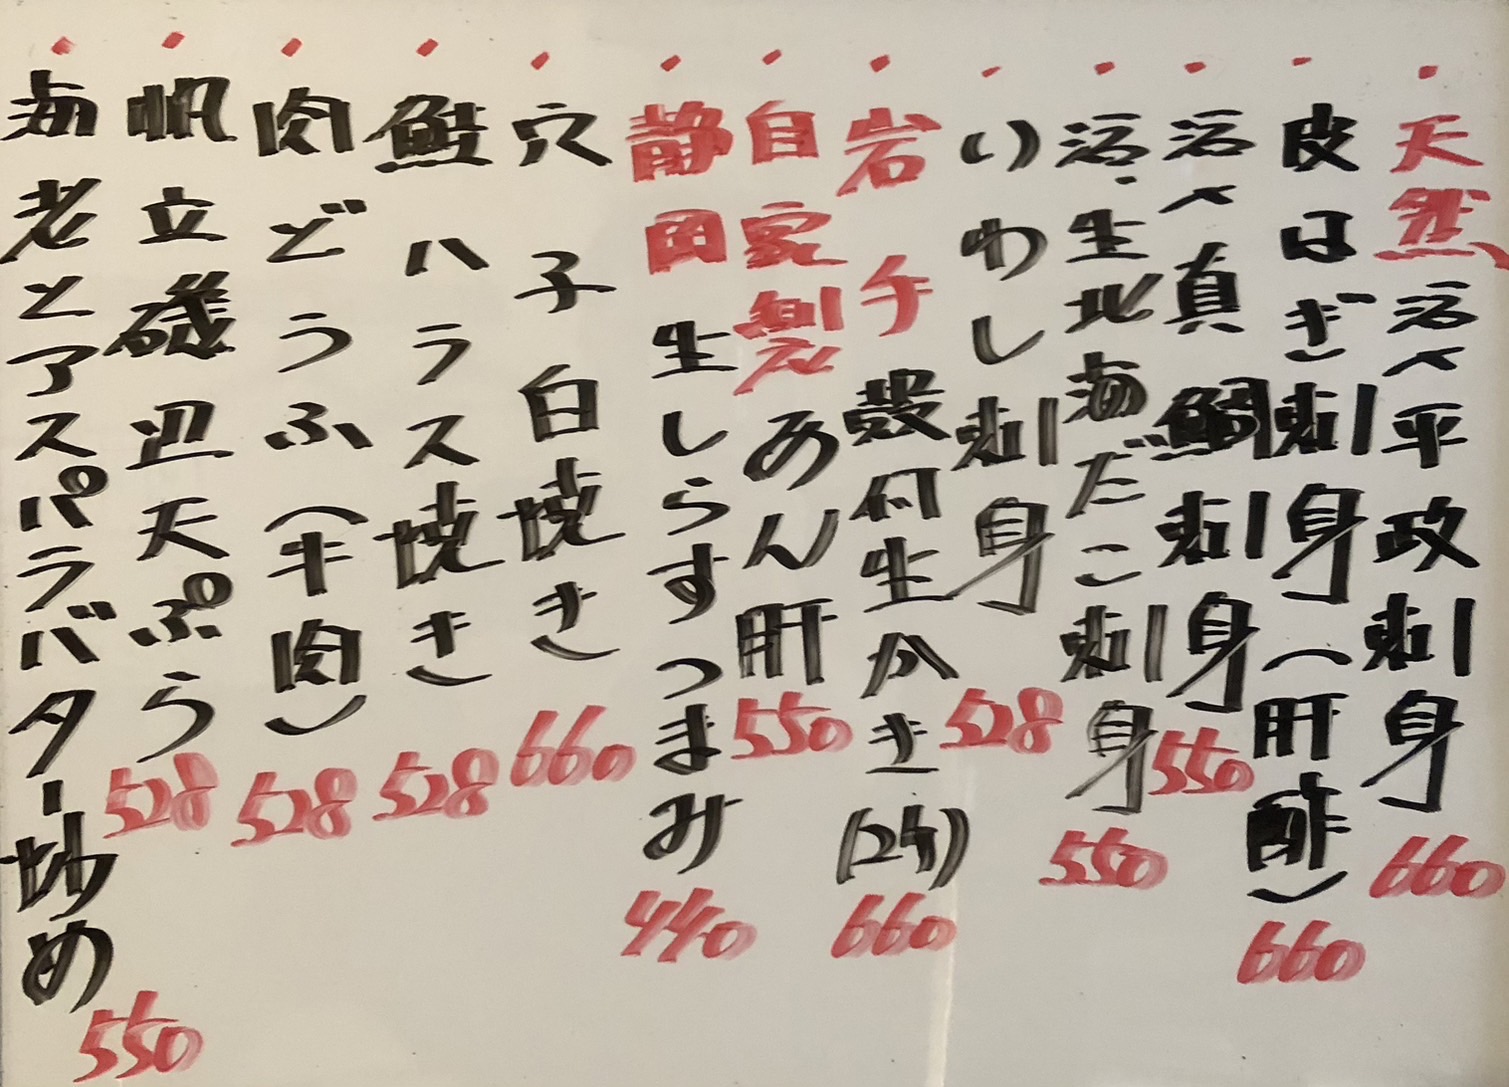 天然活〆平政刺身 660
皮はぎ刺身(肝酢) 660
活〆真鯛刺身 550
活・生北海だこ刺身 550
いわし刺身 528
岩手殻付生かき(2ケ) 660
自家製あん肝 550
静岡生しらすつまみ 440
穴子白焼き 660
鮭ハラス焼き 528
肉どうふ(牛肉) 528
帆立磯辺天ぷら 528
海老とアスパラバター炒め 550